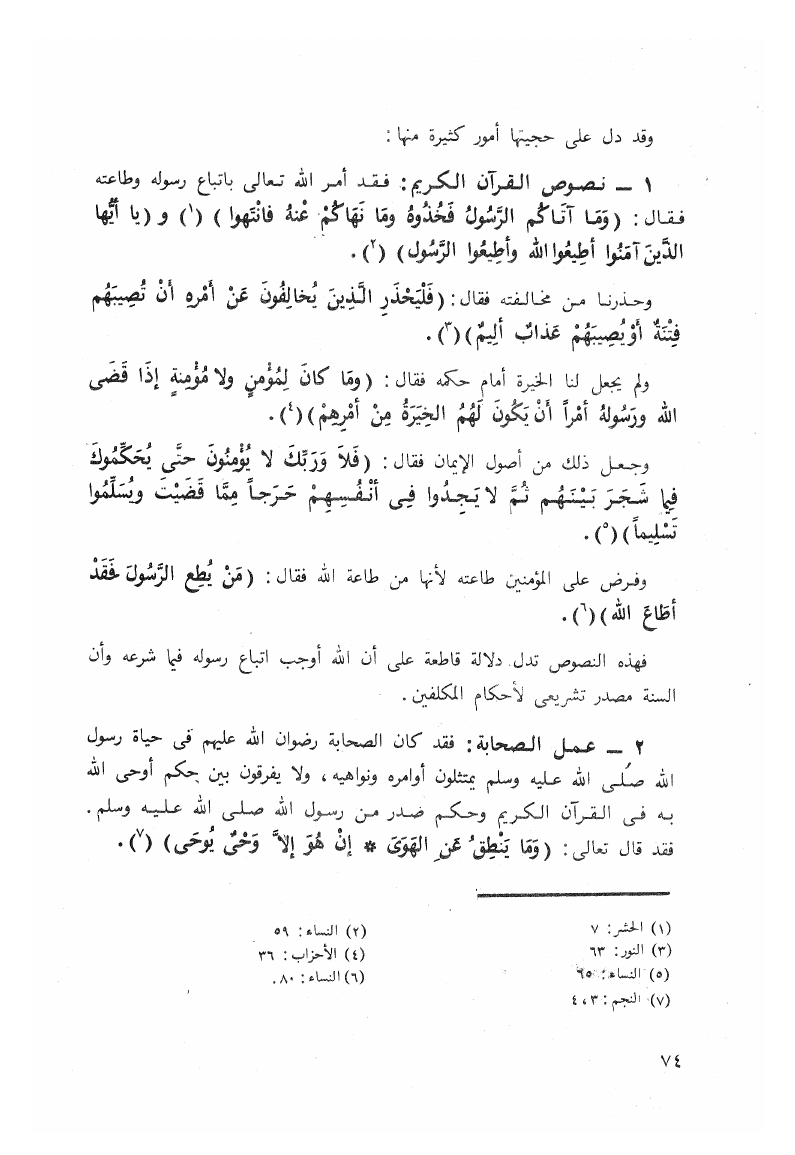 وقد دل على حجيتها أمور كثيرة منها :
١ ــ نصوص القرآن الكريم : فقد أمر الله تعالى باتباع رسوله وطاعته
فقال : ( وَمَا آتاكُم الرَّسُولُ فَخُذُوهُ ومَا نَهَاكُمْ عَنْهُ فانْتَهوا ) (١) و ( يا أيُّها
الذَّينَ آمَنُوا أطِيعُوا الله وأطِيعُوا الرَّسُول ) (٢) .
وحذرنا من مخالفته فقال : ( فَلْيَحْذَرِ الَّذِينَ يُخالِفُونَ عَنْ أمْرِهِ أَنْ تُصِيبَهُم
فِتْنَةٌ أوْ يُصِيبَهُمْ عَذابٌ أليمٌ ) (٣) .
ولم يجعل لنا الخيرة أمام حكمه فقال : ( ومَا كانَ لِمُؤْمنٍ ولا مُؤْمِنةٍ إذَا قَضَى
الله ورَسُولهُ أمْراً أنْ يَكُونَ لَهُمُ الخِيَرَةُ مِنْ أمْرِهِمْ ) (٤) .
وجعل ذلك من أصول الإيمان فقال : ( فَلاَ وَرَبِّكَ لا يُؤْمِنُونَ حتَّى يُحَكِّمُوكَ
فِيمَا شَجَرَ بَيْنَهُم ثُمَّ لا يَجِدُوا فِى أنْفُسِهِمْ حَرَجاً مِمَّا قَضَيْتَ ويُسَلِّمُوا
تَسْلِيماً ) (٥) .
وفرض على المؤمنين طاعته لأنها من طاعة الله فقال : ( مَنْ يُطِع الرَّسُولَ فَقَدْ
أطَاعَ الله ) (٦) .
فهذه النصوص تدل دلالة قاطعة على أن الله أوجب اتباع رسوله فيما شرعه وأن
السنة مصدر تشريعى لأحكام المكلفين .
٢ ــ عمل الصحابة : فقد كان الصحابة رضوان الله عليهم فى حياة رسول
الله صلى الله عليه وسلم يمتثلون أوامره ونواهيه ، ولا يفرقون بين حكم أوحى الله
به فى القرآن الكريم وحكم صدر من رسول الله صلى الله عليه وسلم .
فقد قال تعالى : ( وَمَا يَنْطِقُ عَنِ الهَوَى * إنْ هُوَ إلاَّ وَحْىٌ يُوحَى ) (٧) .
(١) الحشر : ٧ (٢) النساء : ٥٩
(٣) النور : ٦٣ (٤) الأحزاب : ٣٦
(٥) النساء : ٦٥ (٦) النساء : ٨٠ .
(٧) النجم : ٣ ، ٤
٧٤